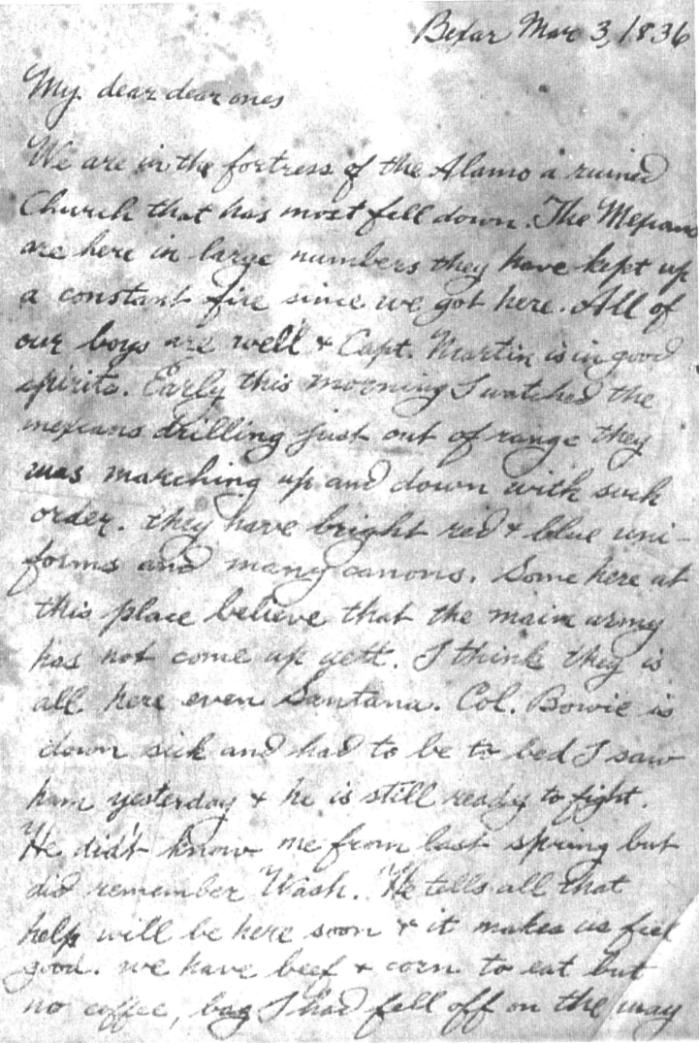 Bexar Mar 3, 1836
My dear dear ones
We are in the fortress of the Alamo a ruined
Church that has most fell down. The Mexicans
are here in large numbers they have kept up
a constant fire since we got here. All of
our boys are well & Capt. Martin is in good
spirits. Early this morning I watched the
mexians drilling just out of range they
was marching up and down with such
order. they have bright red & blue uni-
forms and many canons. Some here at
this place believe that the main army
has not come up yett. I think they is
all here even Santana. Col. Bowie is
down sick and had to be to bed I saw
ham yesterday & he is still ready to fight.
He did't know me from last spring but
did remember Wash. He tells all that
help will be here soon & it makes us feel
good. we have beef & corn to eat but
no coffee, bag I had fell off on the way